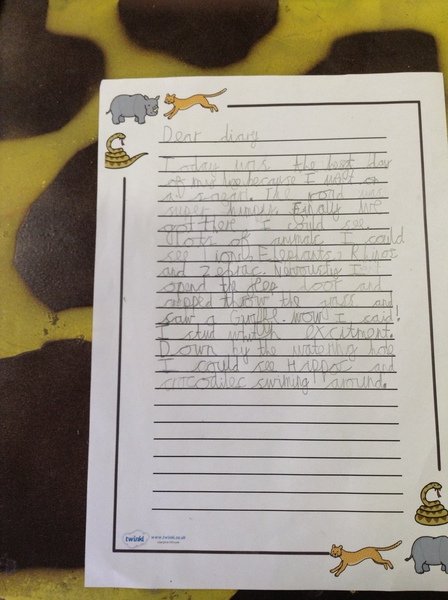 Dear diary
Today was the best day
of my life because I went on
a safari. The road was
super bumpy. Finally we
got there I could see
lots of animals I could
see Lions, Elephants, Rhinos
and zebras. Nervously I
opend the door and
stepped throw the grass and
saw a Giraffe wow I said!
I stud whith excitment.
Down by the watering hole
I could see Hippos and
crocodiles swiming around.
twinkl www.twinkl.co.uk